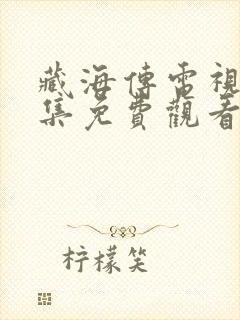 藏海傳電視
集免費觀看
柠檬笑